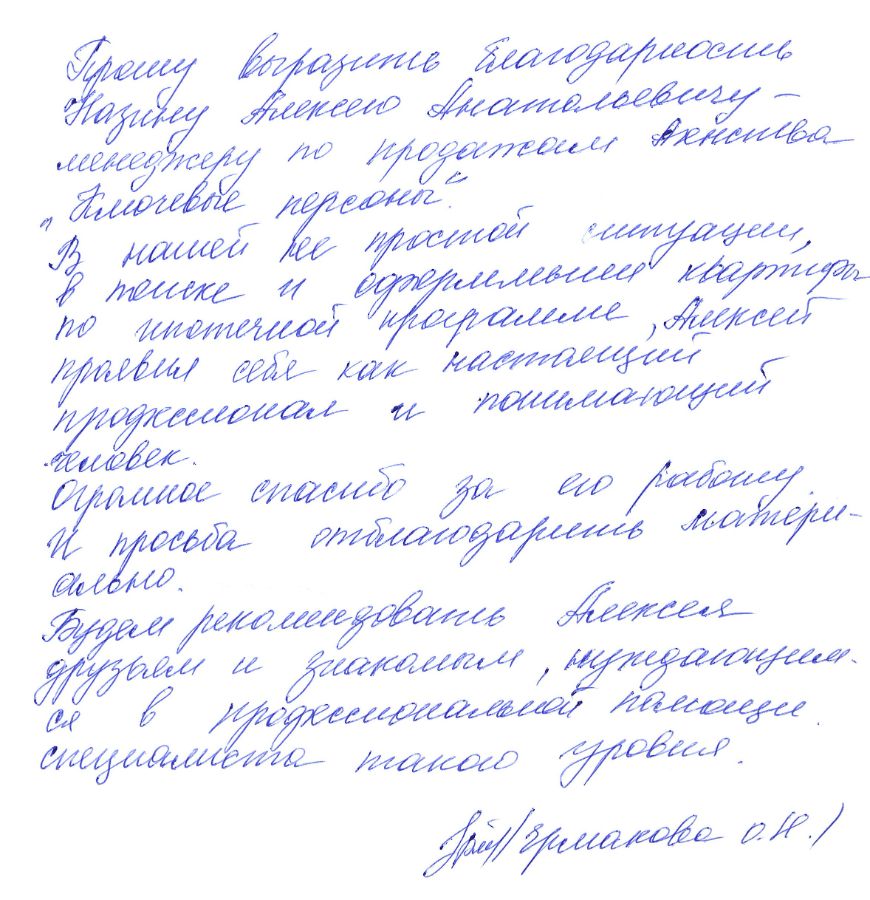 Прошу выразить благодарность
Назину Алексею Анатольевичу –
менеджеру по продажам Агенства
„Ключевые персоны“.
В нашей не простой ситуации,
в поиске и оформлении квартиры
по ипотечной программе, Алексей
проявил себя как настоящий
профессионал и понимающий
человек.
Огромное спасибо за его работу.
И просьба отблагодарить матери-
ально.
Будем рекомендовать Алексея
друзьям и знакомым, нуждающим-
ся в профессиональной помощи
специалиста такого уровня.
/Ермакова О.Н./